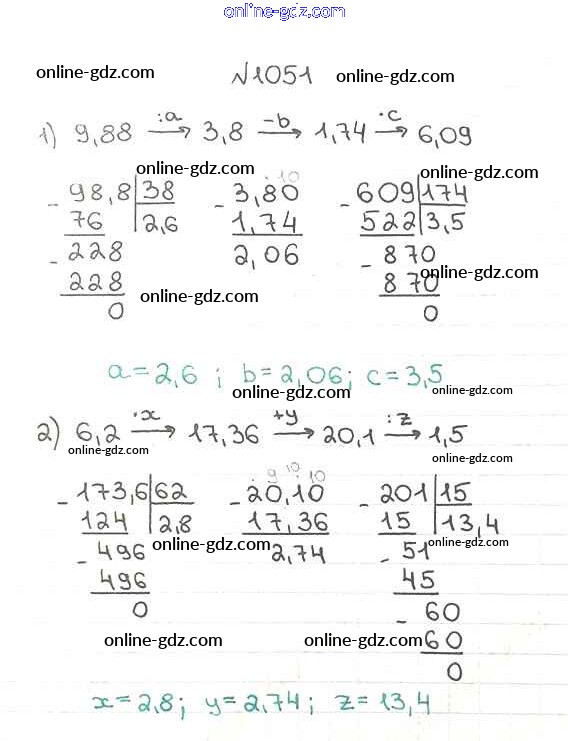 online-gdz.com
online-gdz.com №1051 online-gdz.com
1) 9,88 :a→ 3,8 −b→ 1,74 ·c→ 6,09
online-gdz.com · 10 online-gdz.com
- 98,8 | 38 - 3,80 - 609 | 174
76 | 2,6 1,74 522 | 3,5
- 228 2,06 - 870
228 online-gdz.com 870 online-gdz.com
0 0
a=2,6 ; b=2,06; c=3,5
online-gdz.com online-gdz.com
2) 6,2 ·x→ 17,36 +y→ 20,1 :z→ 1,5
online-gdz.com online-gdz.com
· 9 10 · 10
- 173,6 | 62 - 20,10 - 201 | 15
124 | 2,8 17,36 15 | 13,4
- 496 online-gdz.com 2,74 - 51 online-gdz.com
496 45
0 - 60
online-gdz.com online-gdz.com 60
0
x=2,8; y=2,74; z=13,4